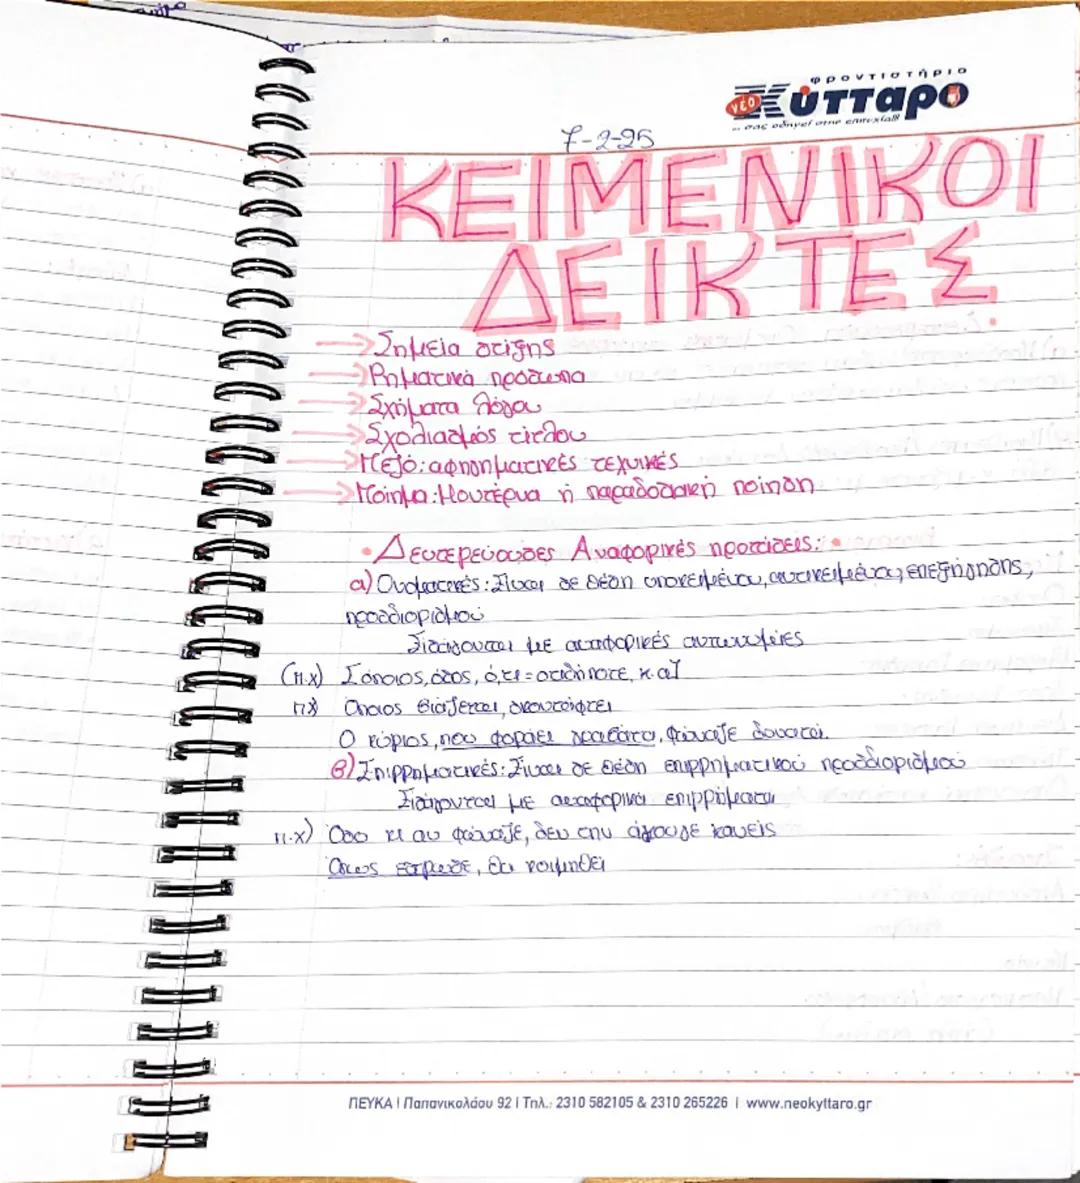 φροντιστήριο
νέο Κύτταρο
... σας οδηγεί στην επιτυχία!!!
7-2-25
ΚΕΙΜΕΝΙΚΟΙ
ΔΕΙΚΤΕΣ
→ Σημεία στίξης
→ Ρηματικά πρόσωπα
→ Σχήματα λόγου
→ Σχολιασμός τίτλου
→ Πεζό: αφηγηματικές τεχνικές
→ Ποίημα: Μοντέρνα ή παραδοσιακή ποίηση
• Δευτερεύουσες Αναφορικές προτάσεις: •
α) Ονοματικές: Είναι σε θέση υποκειμένου, αντικειμένου, επεξήγησης,
προσδιορισμού
Εισάγονται με αναφορικές αντωνυμίες
(π.χ) Σόποιος, όσος, ό,τι = οτιδήποτε, κ.α]
πχ Όποιος βιάζεται, σκοντάφτει
Ο κύριος, που φοράει γραβάτα, φώναξε δυνατά.
β) Επιρρηματικές: Είναι σε θέση επιρρηματικού προσδιορισμού
Εισάγονται με αναφορικά επιρρήματα
π.χ) Όσο κι αν φώναξε, δεν την άκουσε κανείς
Όπως έστρωσε, θα κοιμηθεί
ΠΕΥΚΑ | Παπανικολάου 92 | Τηλ.: 2310 582105 & 2310 265226 | www.neokyttaro.gr